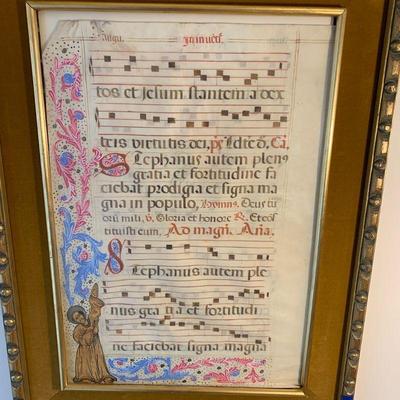 tos et Jesum stantem a dex
tris virtutis dei, ps Ca,
Stephanus autem plenꝰ
gratia et fortitudine fa
ciebat prodigia et signa ma
gna in populo, Hymnꝰ. Deus tu
orũ mili, v. Gloria et honore R. Et cõs
tituisti eum. Ad magni. Aña.
Stephanus autem ple
nus gra tia et fortitudi
ne faciebat signa magna